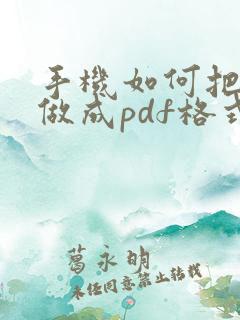 手机如何把
做成pdf格式
葛永明
未经同意禁止转载